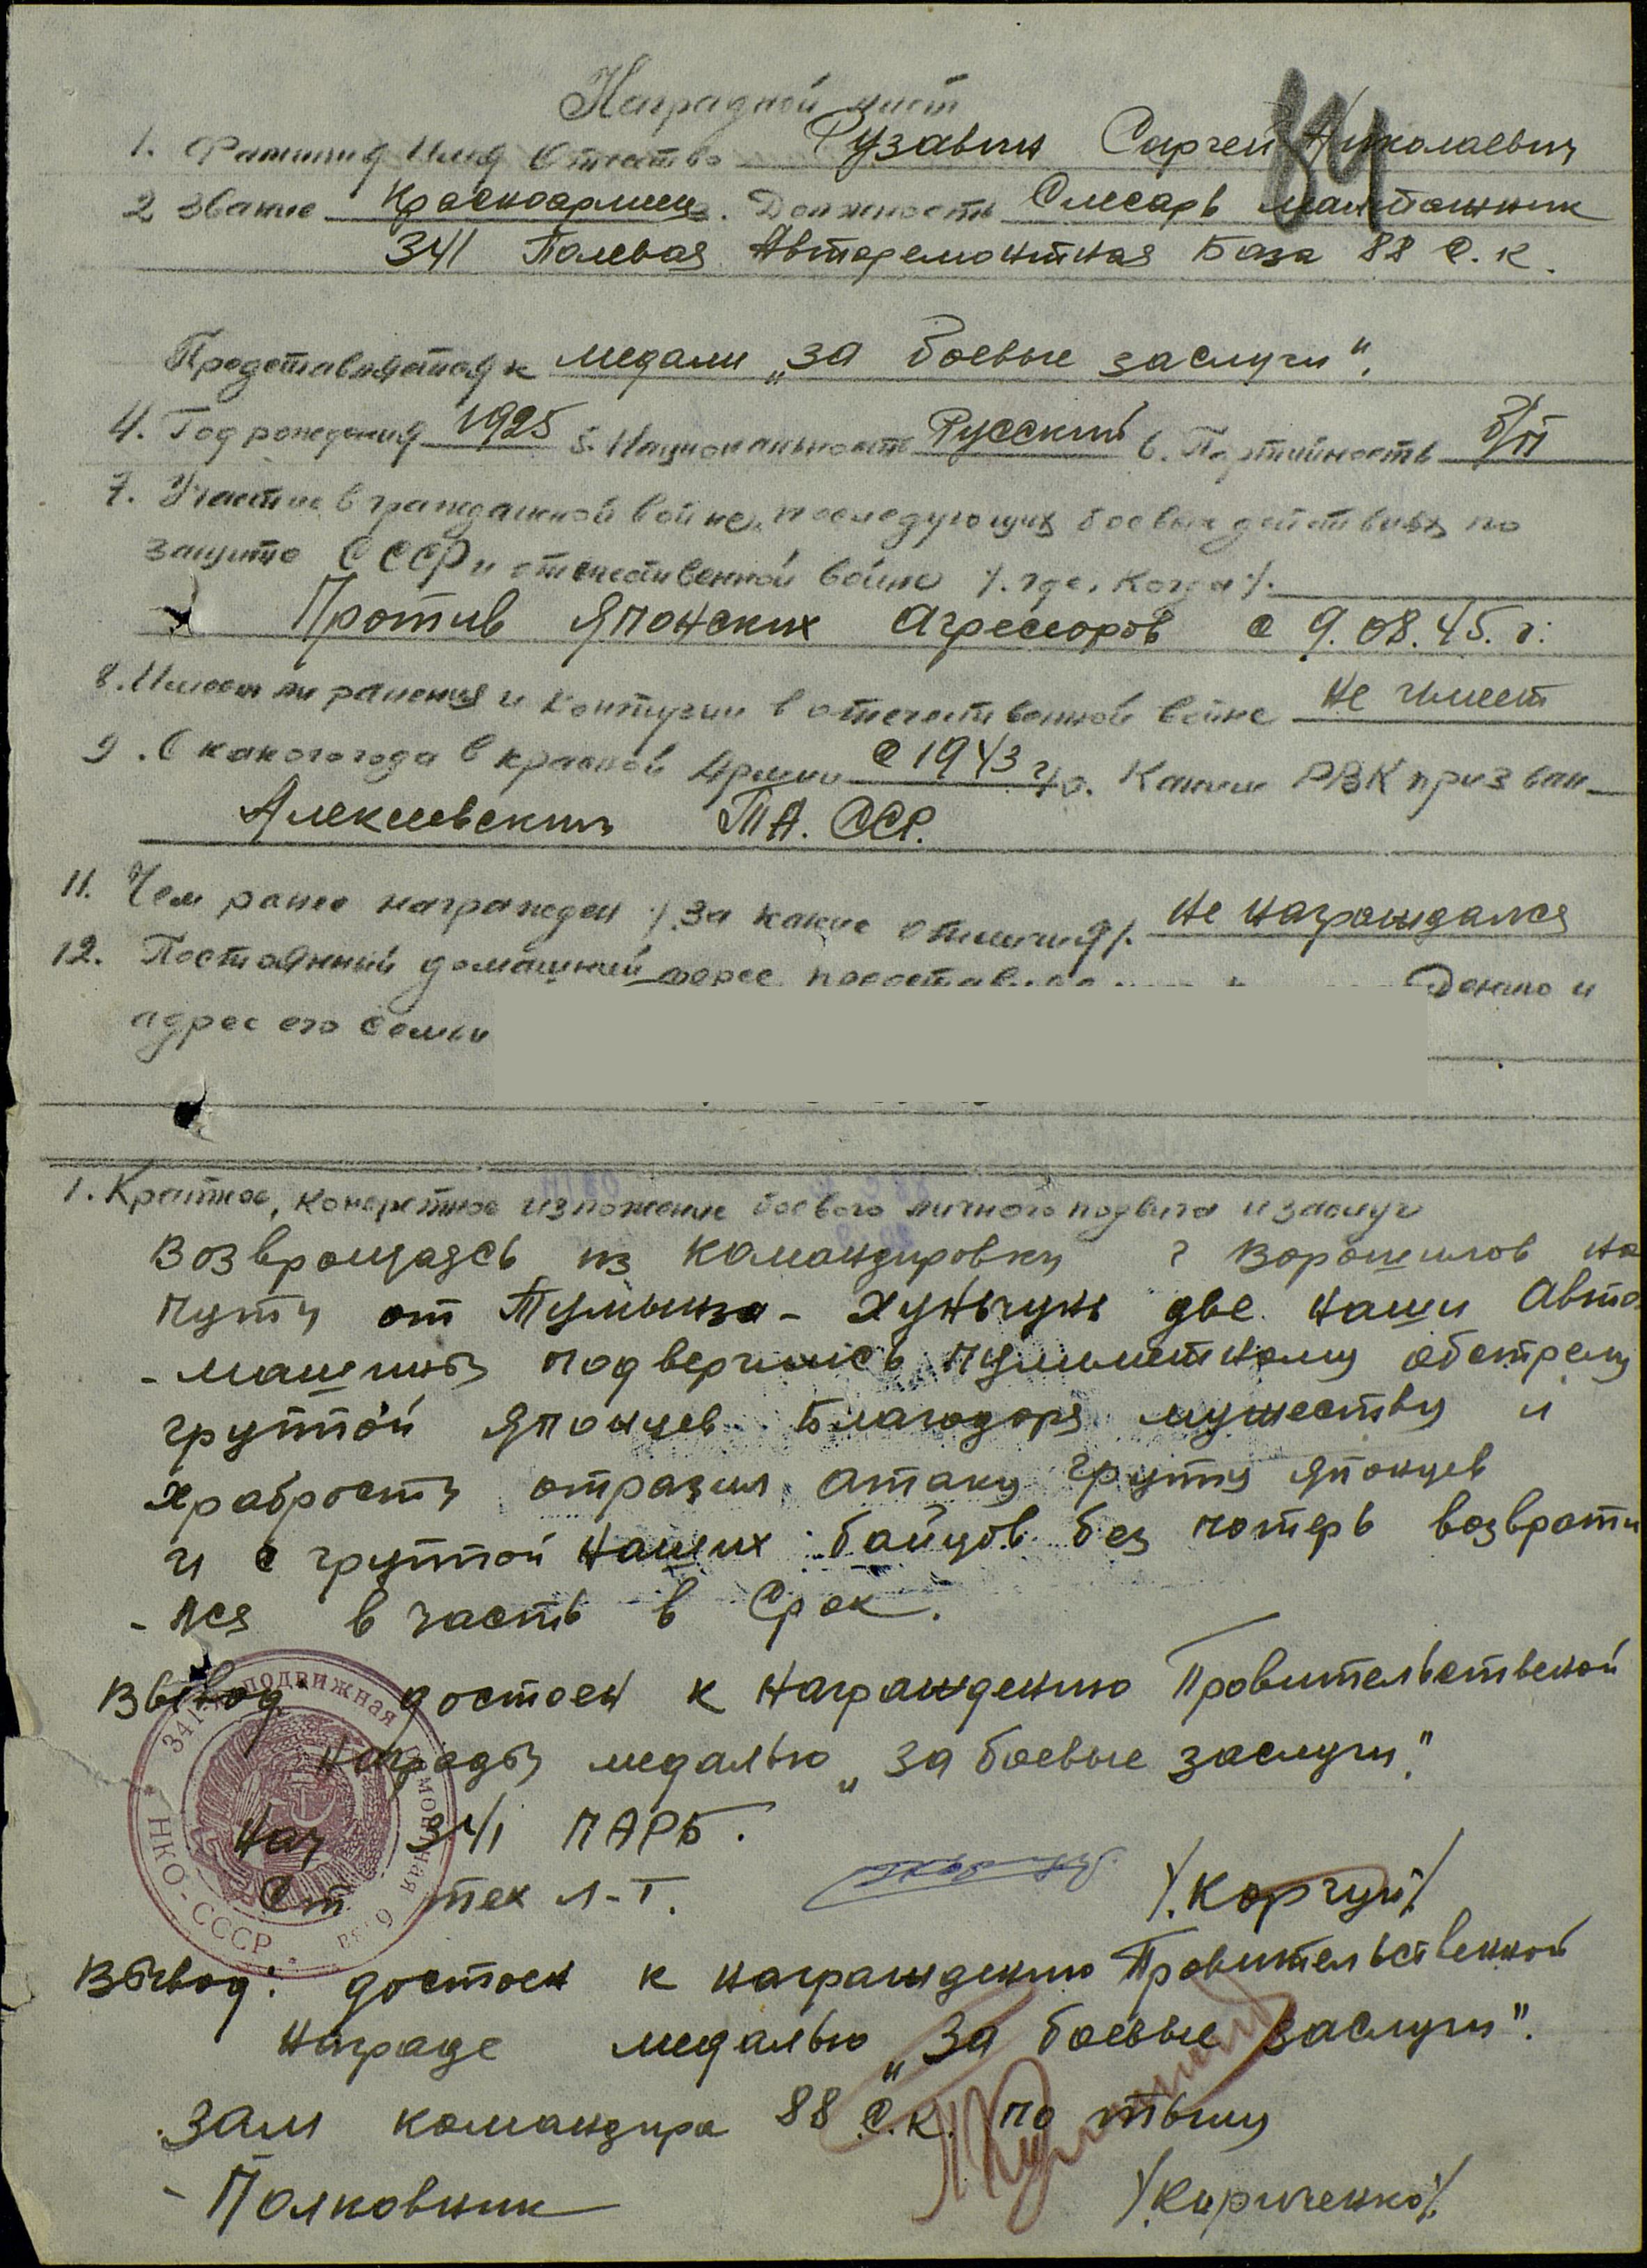 Наградной лист
84
1. Фамилия Имя Отчество Рузавин Сергей Николаевич
2 Звание Красноармеец. Должность Слесарь монтажник
341 Полевая Авторемонтная База 88 с.к.
Представляется к медали „за боевые заслуги".
4. Год рождения 1925 5. Национальность Русский 6. Партийность б/п
7. Участие в гражданской войне, последующих боевых действиях по
защите СССР и отечественной войне /. где, когда /.
Против Японских агрессоров с 9.08.45. г.
8. Имеет ли ранения и контузии в отечественной войне не имеет
9. С какого года в красной Армии с 1943 г 10. Каким РВК призван
Алексеевским ТА. ССР.
11. Чем ранее награжден /. за какие отличия /. не награждался
12. Постоянный домашний адрес
адрес его семьи
1. Краткое, конкретное изложение боевого личного подвига и заслуг
Возвращаясь из командировки г Ворошилов на
пути от Тумынза - Хуньчунь две наши авто
- машины подверглись пулеметному обстрелу
группой Японцев. Благодаря мужеству и
храбрости отразил атаку группу японцев
и с группой наших бойцов без потерь возврати
- лся в часть в срок.
Вывод достоен к награждению Правительственной
награды медалью „за боевые заслуги".
Нач 341 ПАРБ.
Ст тех л-т. /. Корчуй /.
341 подвижная ремонтная база
НКО - СССР
Вывод: достоен к награждению Правительственной
награде медалью „за боевые заслуги".
Зам командира 88 с.к. по тылу
- Полковник /. Кириченко /.